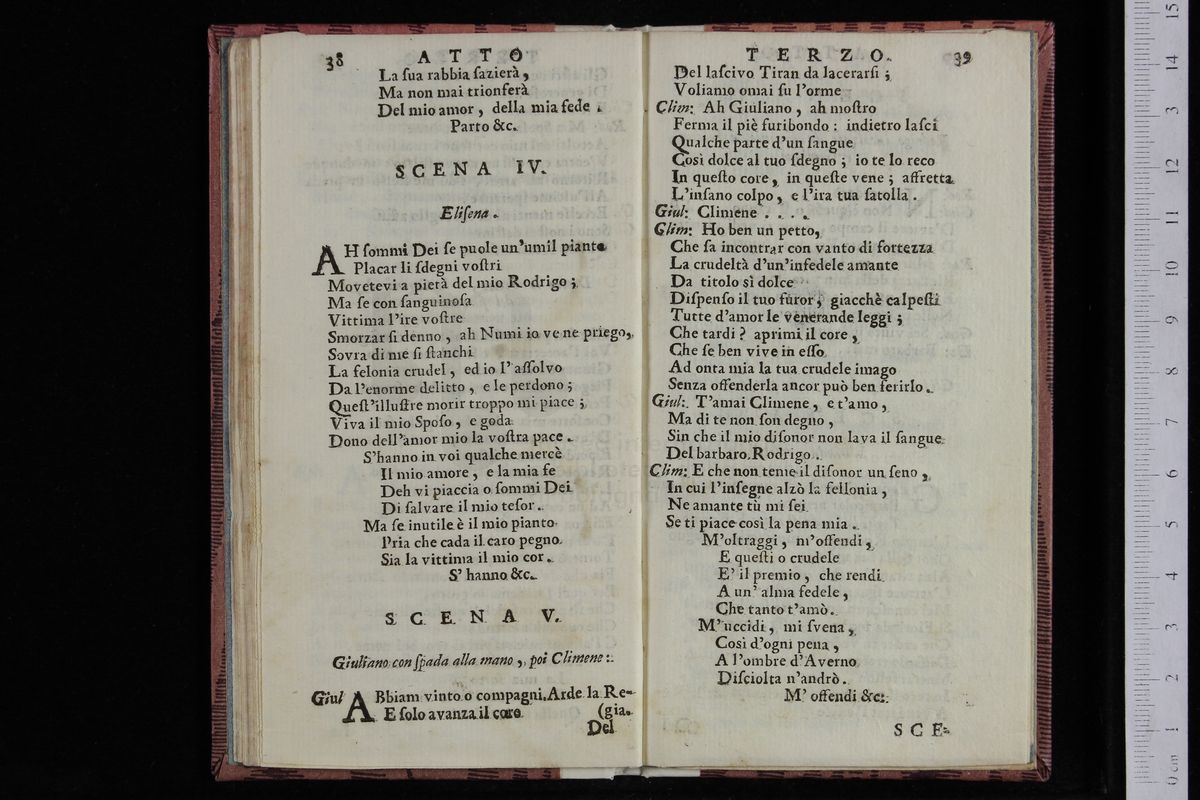 38 ATTO
La ſua rabbia ſazierà,
Ma non mai trionferà
Del mio amor, della mia fede.
Parto &c.
SCENA IV.
Eliſena.
AH ſommi Dei ſe puole un'umil pianto
Placar li ſdegni voſtri
Movetevi a pietà del mio Rodrigo;
Ma ſe con ſanguinoſa
Vittima l'ire voſtre
Smorzar ſi denno, ah Numi io ve ne priego,
Sovra di me ſi ſtanchi
La felonia crudel, ed io l'aſſolvo
Da l'enorme delitto, e le perdono;
Queſt'illuſtre morir troppo mi piace;
Viva il mio Spoſo, e goda
Dono dell'amor mio la voſtra pace.
S'hanno in voi qualche mercè
Il mio amore, e la mia fe
Deh vi piaccia o ſommi Dei
Di ſalvare il mio teſor.
Ma ſe inutile è il mio pianto
Pria che cada il caro pegno
Sia la vittima il mio cor.
S'hanno &c.
SCENA V.
Giuliano con ſpada alla mano, poi Climene:
Giul ABbiam vinto o compagni. Arde la Re-
E ſolo avanza il core (gia.
Del
TERZO. 39
Del laſcivo Tiran da lacerarſi;
Voliamo omai ſu l'orme
Clim: Ah Giuliano, ah moſtro
Ferma il piè furibondo: indietro laſci
Qualche parte d'un ſangue
Così dolce al tuo ſdegno; io te lo reco
In queſto core, in queſte vene; affretta
L'inſano colpo, e l'ira tua ſatolla.
Giul: Climene . . . .
Clim: Ho ben un petto,
Che ſa incontrar con vanto di fortezza
La crudeltà d'un'infedele amante
Da titolo sì dolce
Diſpenſo il tuo furor, giacchè calpeſti
Tutte d'amor le venerande leggi;
Che tardi? aprimi il core,
Che ſe ben vive in eſſo
Ad onta mia la tua crudele imago
Senza offenderla ancor può ben ferirlo.
Giul: T'amai Climene, e t'amo,
Ma di te non ſon degno,
Sin che il mio diſonor non lava il ſangue
Del barbaro Rodrigo.
Clim: E che non teme il diſonor un ſeno,
In cui l'inſegne alzò la fellonia,
Ne amante tù mi ſei
Se ti piace così la pena mia.
M'oltraggi, m'offendi,
E queſti o crudele
E' il premio, che rendi
A un' alma fedele,
Che tanto t'amò.
M'uccidi, mi ſvena,
Così d'ogni pena,
A l'ombre d'Averno
Diſciolta n'andrò.
M'offendi &c.
SCE-
0 cm 1 2 3 4 5 6 7 8 9 10 11 12 13 14 15